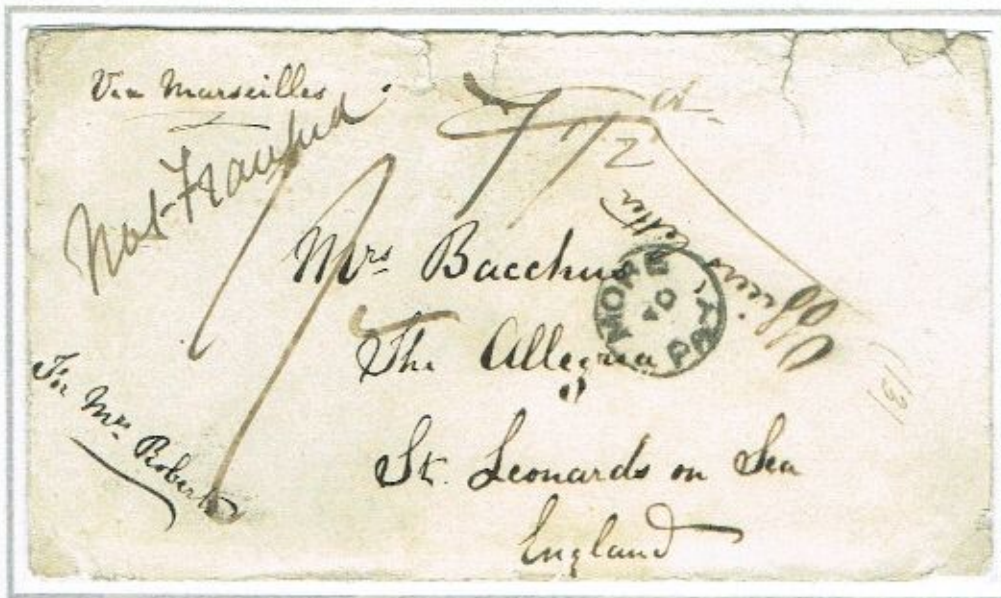 Via Marseilles
Not Franked
Officers Letter
Mrs Bacchus
The Allegria
St. Leonards on Sea
England
For Mrs Roberts
MORE TO PAY
(13)